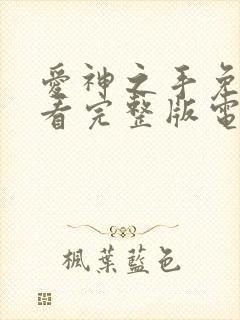 愛神之手免
看完整版電
楓葉藍色